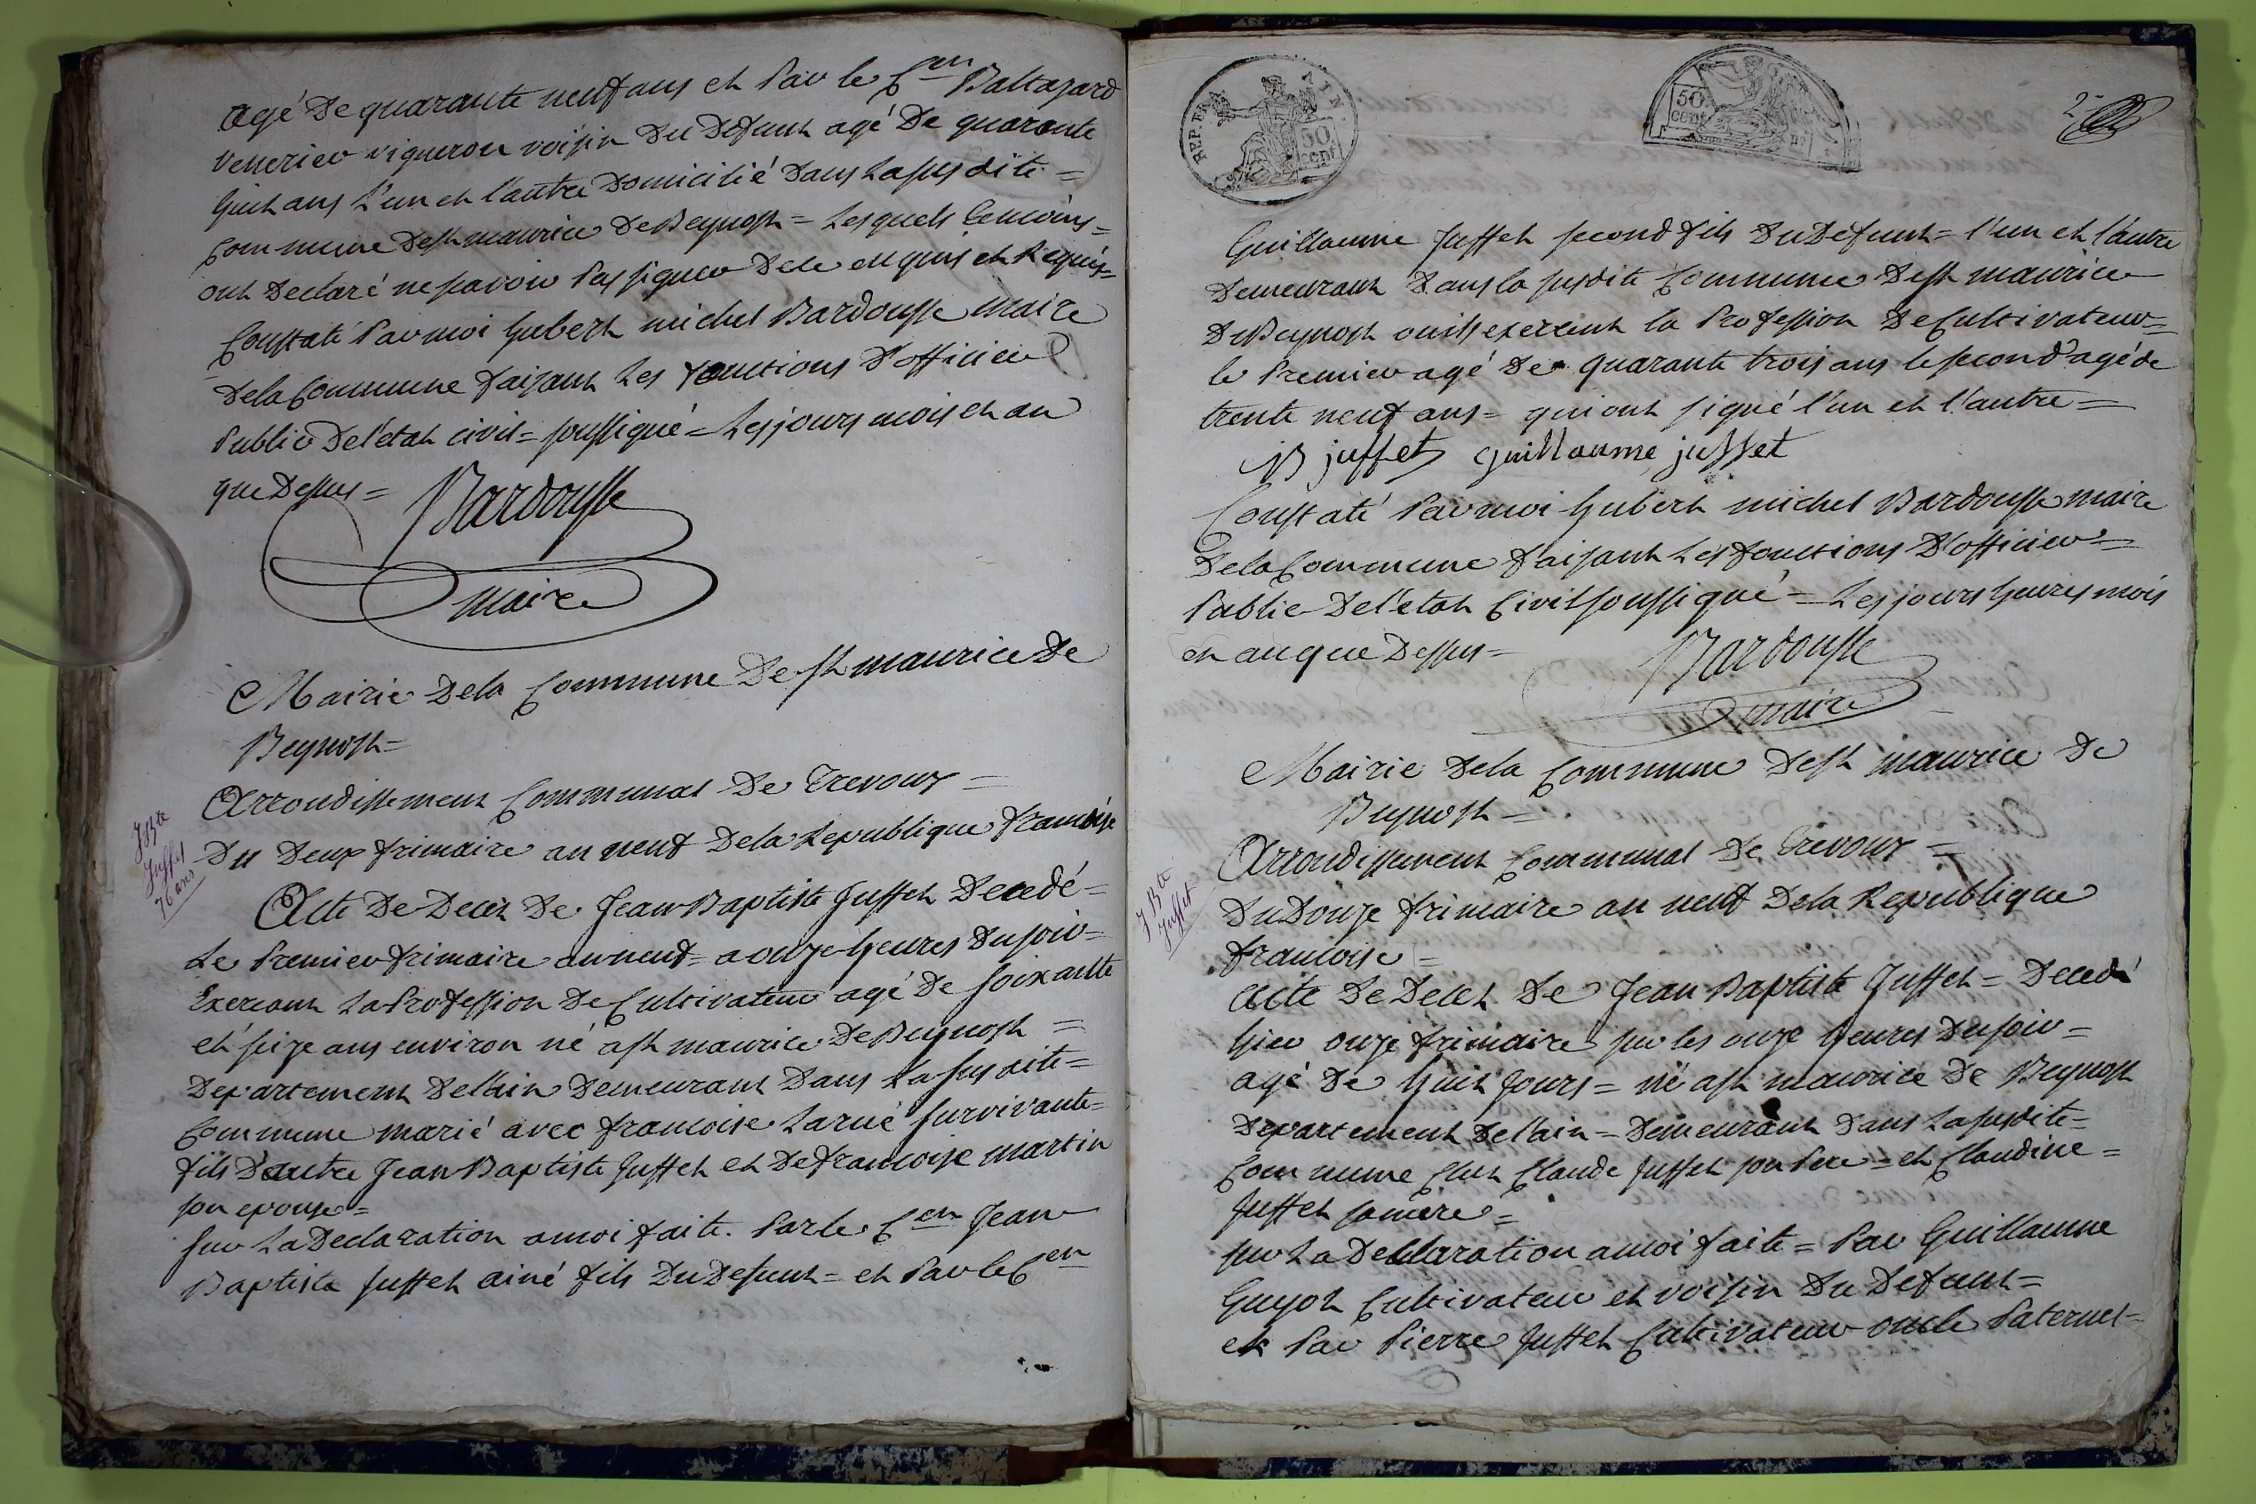 agé De quarante neuf ans et Par le Cen Baltazard
venerier vigneron voisin Du Defunt agé De quarante
huit ans L'un et l'autre Domicilié Dans La susdite =
Commune De st maurice De Beynost = Lesquels temoins =
ont Declaré ne savoir Pas signer De ce enquis et Requis =
Constaté Par moi hubert michel Bardousse maire
De la Commune faisant Les fonctions D'officier
Public De l'etat civil = soussigné = Les jours mois et an
que Dessus =
Bardousse
maire
Mairie De la Commune De st maurice De
Beynost =
Arrondissement Communal De Trevoux =
J Bte
Juffet
76 ans
Du Deux frimaire an neuf De la Republique francoise
Acte De Deces De Jean Baptiste Juffet Decedé =
Le Premier frimaire an neuf = a onze heures Du soir =
Exercant La Profession De Cultivateur agé De soixante
et seize ans environ né a st maurice De Beynost =
Departement De l'ain Demeurant Dans La susdite =
Commune marié avec francoise Larue survivante =
fils D'autre Jean Baptiste Juffet et De francoise martin
son epouse =
sur La Declaration a moi faite. Par le Cen Jean
Baptiste Juffet ainé fils Du Defunt = et Par le Cen
REP. FRA
50
cent
50
cent
2
Guillaume Juffet second fils Du Defunt = l'un et l'autre
Demeurant Dans la susdite Commune De st maurice
De Beynost ou ils exercent la Profession De Cultivateur =
le Premier agé De quarante trois ans le second agé de
trente neuf ans = qui ont signé l'un et l'autre =
JB juffet guillaume juffet
Constaté Par moi hubert michel Bardousse maire
De la Commune faisant Les fonctions D'officier =
Public De l'etat Civil soussigné = Les jours heures mois
et an que Dessus =
Bardousse
maire
Mairie De la Commune De st maurice De
Beynost =
Arrondissement Communal De Trevoux =
J Bte
Juffet
Du Douze frimaire an neuf De la Republique
francoise =
Acte De Deces De Jean Baptiste Juffet = Decedé
hier onze frimaire sur les onze heures Du soir =
agé De huit Jours = né a st maurice De Beynost
Departement De l'ain = Demeurant Dans La susdite =
Commune Chez Claude Juffet son Pere = et Claudine =
Juffet sa mere =
sur La Declaration a moi faite = Par Guillaume
Guyot Cultivateur et voisin Du Defunt =
et Par Pierre Juffet Cultivateur oncle Paternel =